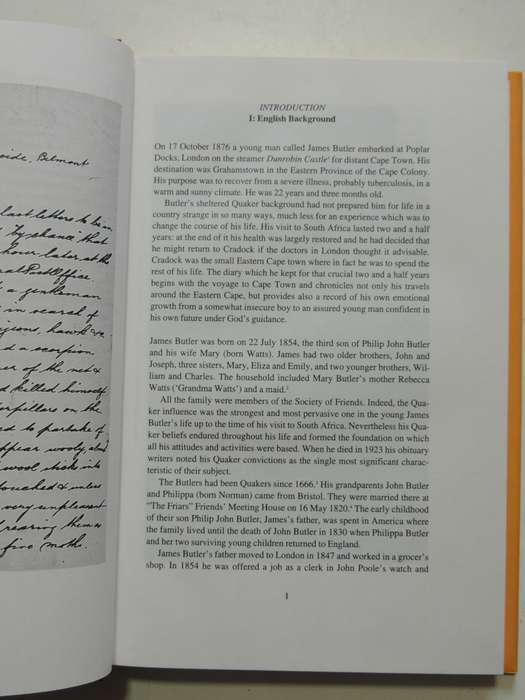 side, Belmont
last letters to be in
"By chance" that
hour later at the
Post Office.
a gentleman
in search of
hawk &c.
a scorpion
of the net &
killed himself
on the
to partake of
wooly, and
wool stick into
touched & unless
very unpleasant
rearing them in
five moths.
INTRODUCTION
I: English Background
On 17 October 1876 a young man called James Butler embarked at Poplar
Docks, London on the steamer Dunrobin Castle¹ for distant Cape Town. His
destination was Grahamstown in the Eastern Province of the Cape Colony.
His purpose was to recover from a severe illness, probably tuberculosis, in a
warm and sunny climate. He was 22 years and three months old.
Butler's sheltered Quaker background had not prepared him for life in a
country strange in so many ways, much less for an experience which was to
change the course of his life. His visit to South Africa lasted two and a half
years: at the end of it his health was largely restored and he had decided that
he might return to Cradock if the doctors in London thought it advisable.
Cradock was the small Eastern Cape town where in fact he was to spend the
rest of his life. The diary which he kept for that crucial two and a half years
begins with the voyage to Cape Town and chronicles not only his travels
around the Eastern Cape, but provides also a record of his own emotional
growth from a somewhat insecure boy to an assured young man confident in
his own future under God's guidance.
James Butler was born on 22 July 1854, the third son of Philip John Butler
and his wife Mary (born Watts). James had two older brothers, John and
Joseph, three sisters, Mary, Eliza and Emily, and two younger brothers, Wil-
liam and Charles. The household included Mary Butler's mother Rebecca
Watts ('Grandma Watts') and a maid.²
All the family were members of the Society of Friends. Indeed, the Qua-
ker influence was the strongest and most pervasive one in the young James
Butler's life up to the time of his visit to South Africa. Nevertheless his Qua-
ker beliefs endured throughout his life and formed the foundation on which
all his attitudes and activities were based. When he died in 1923 his obituary
writers noted his Quaker convictions as the single most significant charac-
teristic of their subject.
The Butlers had been Quakers since 1666.³ His grandparents John Butler
and Philippa (born Norman) came from Bristol. They were married there at
"The Friars" Friends' Meeting House on 16 May 1820.⁴ The early childhood
of their son Philip John Butler, James's father, was spent in America where
the family lived until the death of John Butler in 1830 when Philippa Butler
and her two surviving young children returned to England.
James Butler's father moved to London in 1847 and worked in a grocer's
shop. In 1854 he was offered a job as a clerk in John Poole's watch and
1